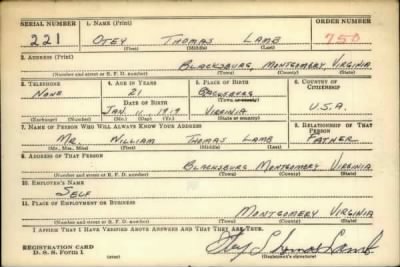 SERIAL NUMBER 1. NAME (Print) ORDER NUMBER
221 OTEY THOMAS LAMB 750
(First) (Middle) (Last)
2. ADDRESS (Print)
BLACKSBURG, MONTGOMERY, VIRGINIA
(Number and street or R. F. D. number) (Town) (County) (State)
3. TELEPHONE 4. AGE IN YEARS 5. PLACE OF BIRTH 6. COUNTRY OF CITIZENSHIP
NONE 21
DATE OF BIRTH (Town or county)
JAN. 11, 1919 VIRGINIA U.S.A.
(Exchange) (Number) (Mo.) (Day) (Yr.) (State or country)
7. NAME OF PERSON WHO WILL ALWAYS KNOW YOUR ADDRESS 8. RELATIONSHIP OF THAT PERSON
MR. WILLIAM THOMAS LAMB FATHER
(Mr., Mrs., Miss) (First) (Middle) (Last)
9. ADDRESS OF THAT PERSON
BLACKSBURG MONTGOMERY VIRGINIA
(Number and street or R. F. D. number) (Town) (County) (State)
10. EMPLOYER'S NAME
SELF
11. PLACE OF EMPLOYMENT OR BUSINESS
MONTGOMERY VIRGINIA
(Number and street or R. F. D. number) (Town) (County) (State)
I AFFIRM THAT I HAVE VERIFIED ABOVE ANSWERS AND THAT THEY ARE TRUE.
REGISTRATION CARD
D. S. S. Form 1 Otey Thomas Lamb
(Registrant's signature)